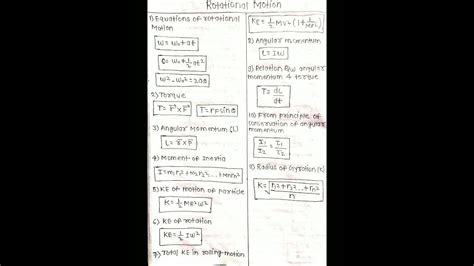 Rotational Motion
1) Equations of rotational
Motion
ω = ω₀ + αt
θ = ω₀ + ½ αt²
ω² - ω₀² = 2αθ
2) Torque
τ = r × F
τ = rF sin θ
3) Angular Momentum (L)
L = r × p
4) Moment of Inertia
I = m₁r₁² + m₂r₂² ... + mₙrₙ²
5) KE of motion of particle
K = ½ MR²ω²
6) KE of rotation
KE = ½ Iω²
7) Total KE in rolling motion
KE = ½ Mv² (1 + I/MR²)
Angular momentum
L = Iω
9) Relation b/w angular
momentum & torque
τ = dL/dt
10) From principle of
conservation of angular
momentum
Radius of Gyration (K)
K = √r₁² + r₂² ... + rₙ² / n